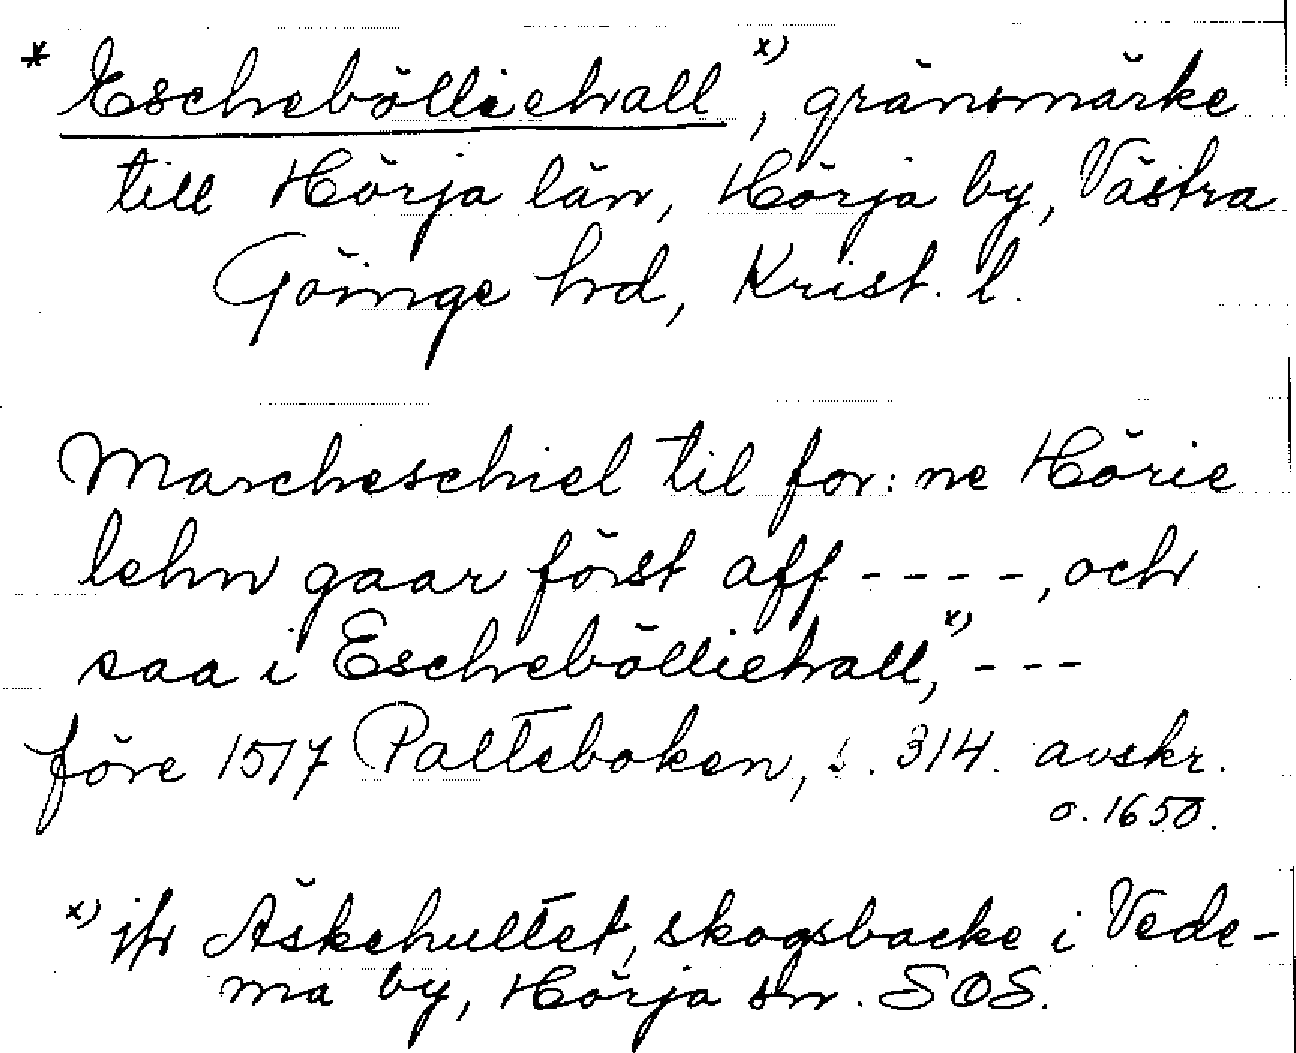 * Eschebölliehall x), gränsmärke
till Hörja län, Hörja by, Västra
Göinge hd, Krist. l.
Marcheschiel til for:ne Hörie
lehn gaar först aff - - - -, och
saa i Eschebölliehall, x) - - -
före 1517 Palteboken, s. 314. avskr.
o. 1650.
x) jfr Äskehultet, skogsbacke i Vede-
ma by, Hörja sn. SOS.